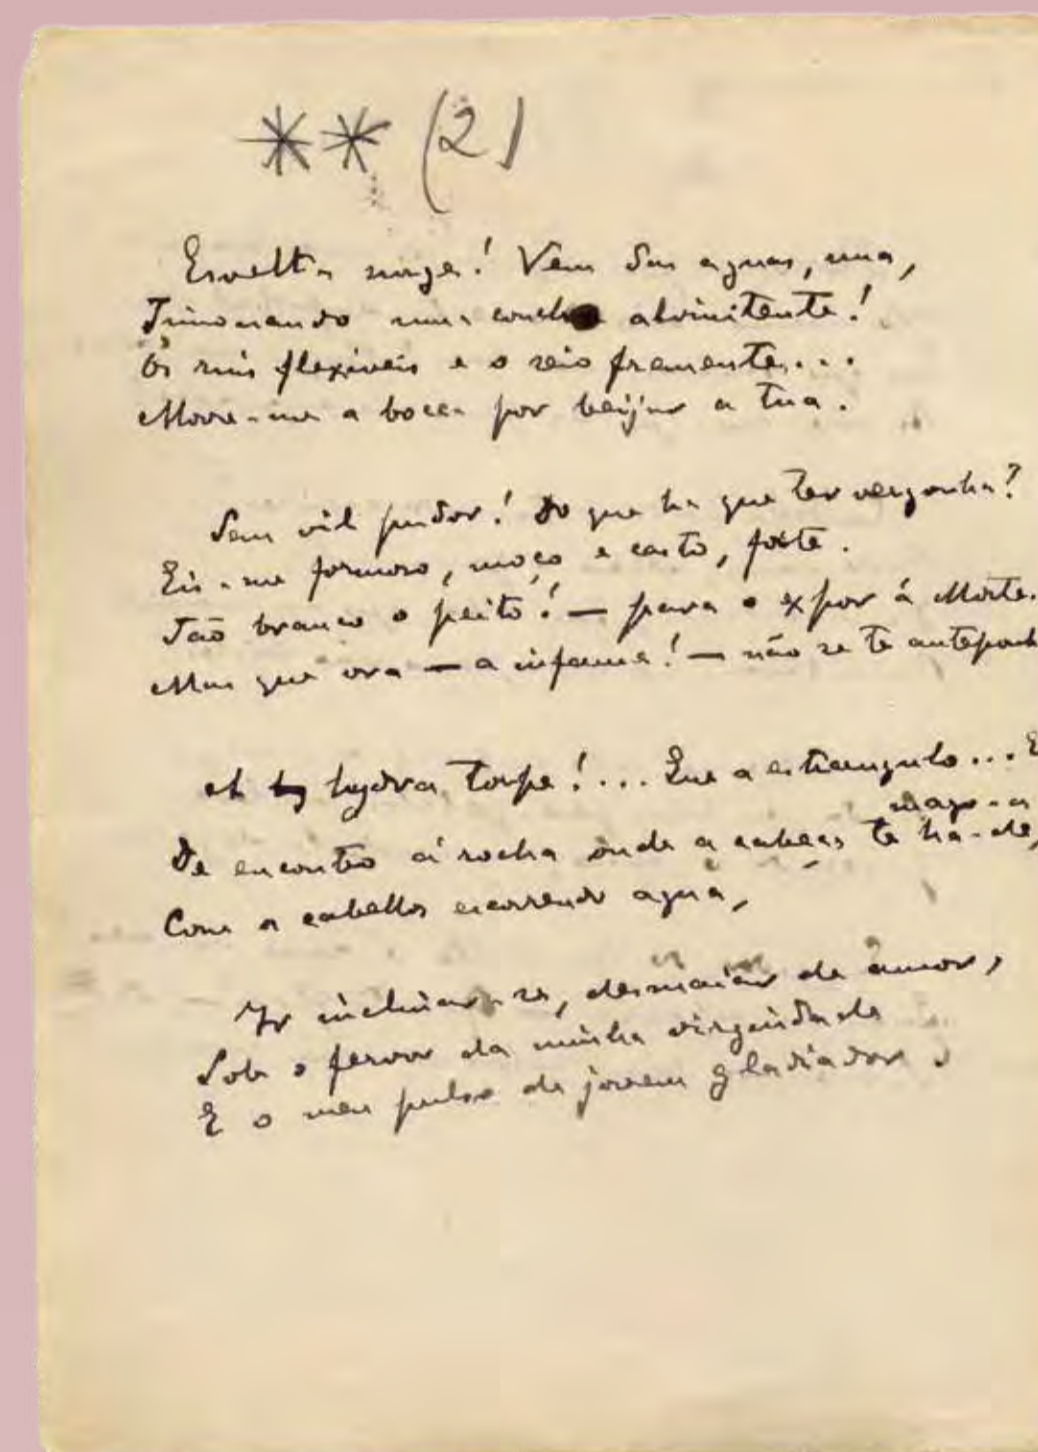 ** (2)
Esvelta surge! Vem das aguas, nua,
Timonando uma concha alvinitente!
Os rins flexiveis e o seio fremente...
Morre-me a bocca por beijar a tua.
Sem vil pudor! Do que ha que ter vergonha?
Eis-me formoso, moço e casto, forte.
Tão branco o peito! — para o expor á Morte.
Mas que ora — a infame! — não se te anteponh
A hydra torpe!... Que a estrangulo... E
De encontro á rocha onde a cabeça te ha-de,
Com os cabellos escorrendo agua,
Ir inclinar-se, desmaiar de amor,
Sob o fervor da minha virgindade
E o meu pulso de jovem gladiador